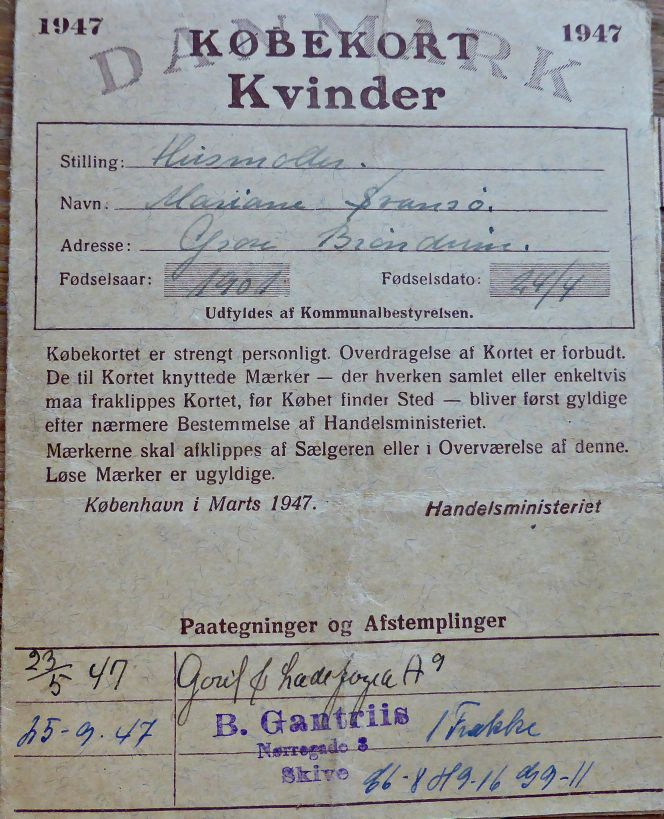 1947 KØBEKORT 1947
DANMARK
Kvinder
Stilling: Husmoder.
Navn: Mariane
Adresse: Grove
Fødselsaar: 1901 Fødselsdato: 24/4
Udfyldes af Kommunalbestyrelsen.
Købekortet er strengt personligt. Overdragelse af Kortet er forbudt.
De til Kortet knyttede Mærker — der hverken samlet eller enkeltvis
maa fraklippes Kortet, før Købet finder Sted — bliver først gyldige
efter nærmere Bestemmelse af Handelsministeriet.
Mærkerne skal afklippes af Sælgeren eller i Overværelse af denne.
Løse Mærker er ugyldige.
København i Marts 1947. Handelsministeriet
Paategninger og Afstemplinger
23/5 47
25-9-47 B. Gantriis 1 Frakke
Nørregade 3
Skive 86-8 H9-16 G9-11